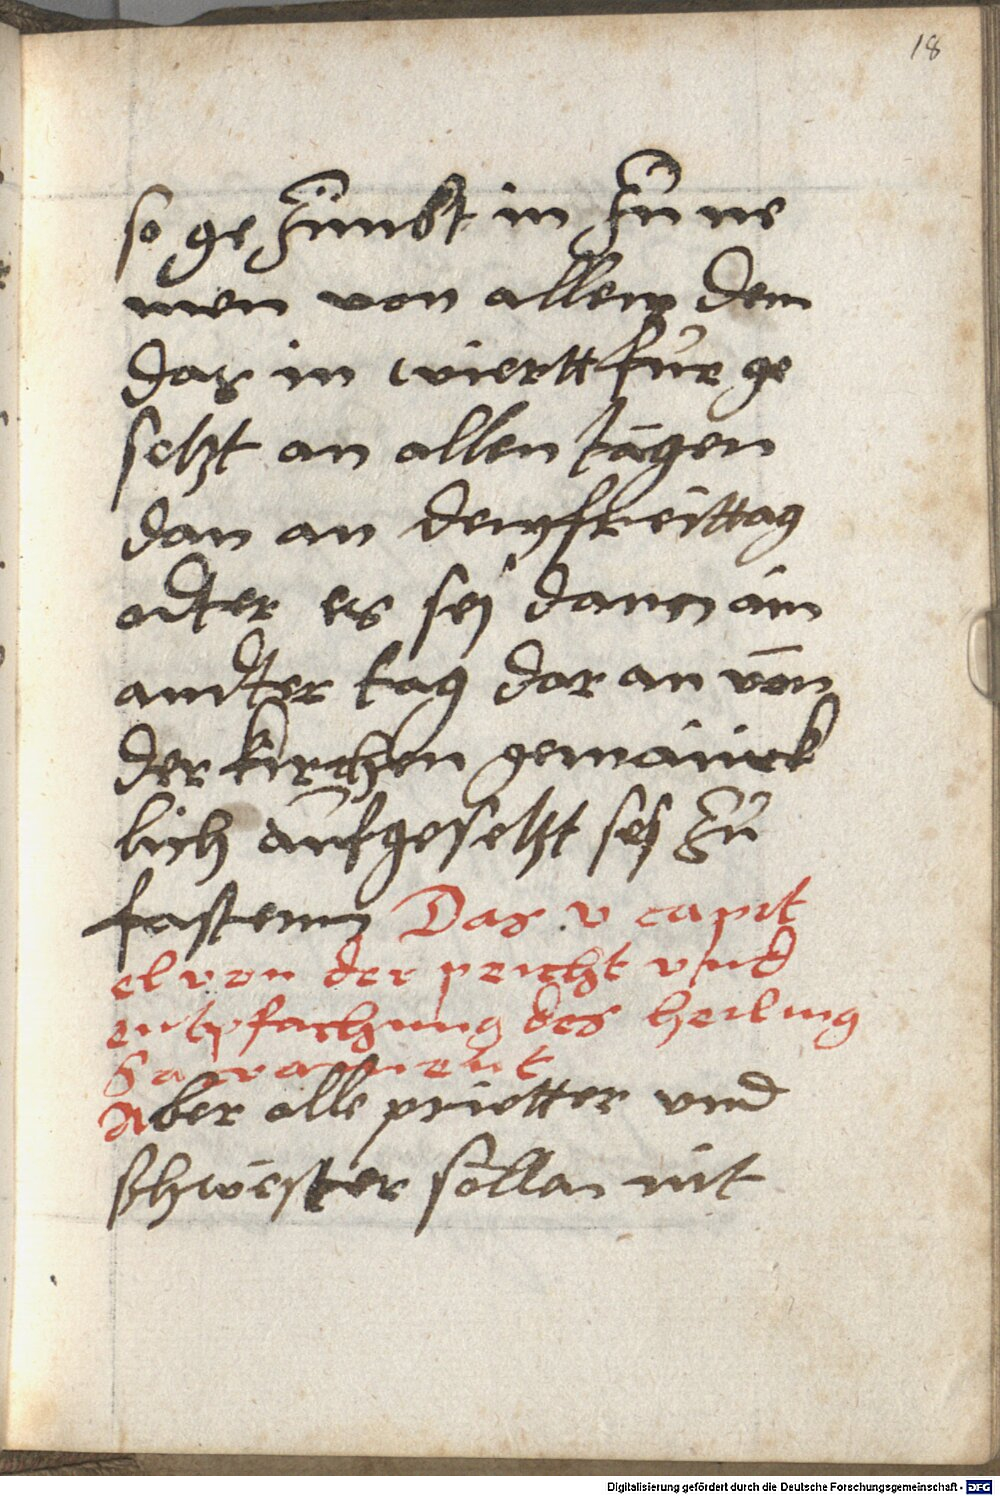 18
so ge zimbt in zu ne
men von allem dem
das in wiertt fur ge
setzt an allen tagen
dan an dem freittag
odter es sej dann ain
andter tag dar an von
der kirchen gemainck
lich aufgesetzt sej zu
fastenn Das v capit
el von der peicht und
entpfachung des heiling
Sacrament
Aber alle prietter vnd
schwester sollan nit
Digitalisierung gefördert durch die Deutsche Forschungsgemeinschaft - DFG